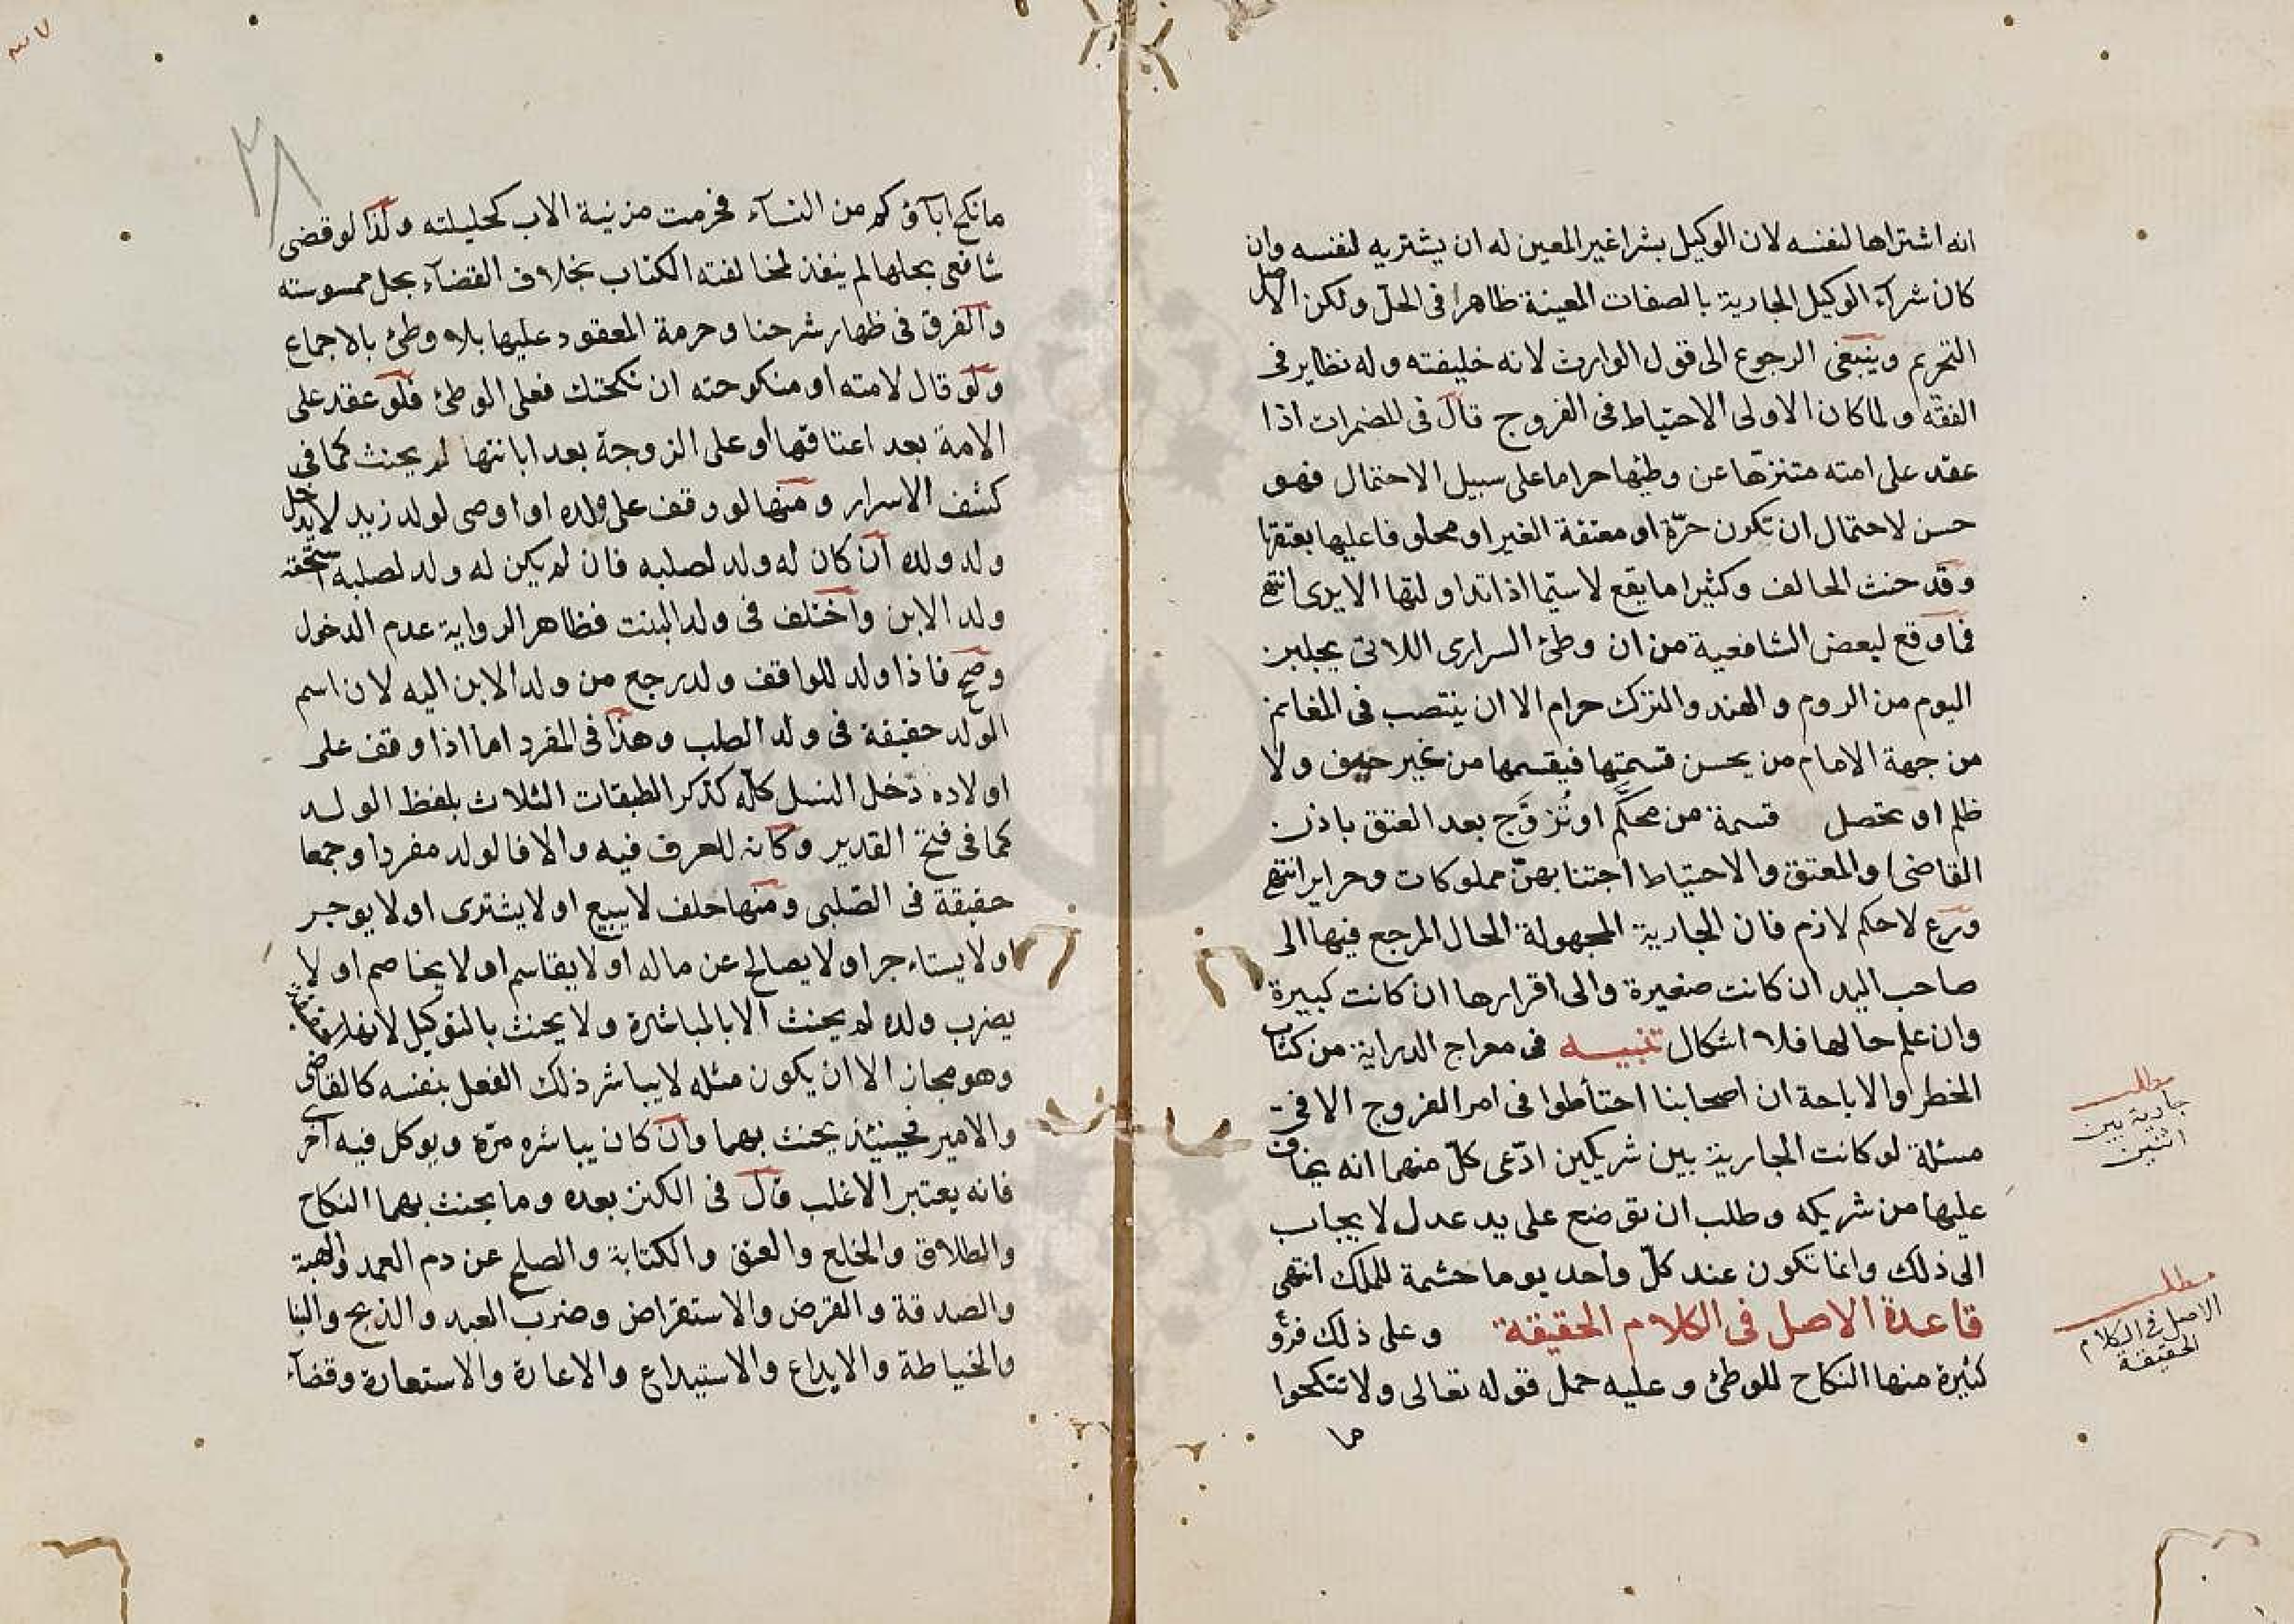 انه اشتراها لنفسه لان الوكيل بشرا غير المعين له ان يشتريه لنفسه وان
كان شرآء الوكيل الجارية بالصفات المعينة ظاهرا فى الحلّ ولكن الاصل
التحريم وينبغى الرجوع الى قول الوارث لانه خليفته وله نظاير فى
الفقه ولما كان الاولى الاحتياط فى الفروج قال فى المضمرات اذا
عقد على امته متنزّها عن وطئها حراما على سبيل الاحتمال فهو
حسن لاحتمال ان تكون حرّة او معتقة الغير او محلوفا عليها بعتقها
وقد حنث الحالف وكثيرا ما يقع لا سيّما اذا تداولتها الايدى انتهى
فما وقع لبعض الشافعية من ان وطئ السرارى اللاتى يجلبن
اليوم من الروم والهند والترك حرام الا ان ينتصب فى المغانم
من جهة الامام من يحسن قسمتها فيقسمها من غير حيف ولا
ظلم او تحصل قسمة من محكَّم او تُزوَّج بعد العتق باذن
القاضى والمعتق والاحتياط اجتنابهنّ مملوكات وحراير انتهى
ورع لا حكم لازم فان الجارية المجهولة الحال المرجع فيها الى
صاحب اليد ان كانت صغيرة والى اقرارها ان كانت كبيرة
وان علم حالها فلا اشكال تنبيه فى معراج الدراية من كتاب
الخطر والاباحة ان اصحابنا احتأطوا فى امر الفروج الا فى
مسئلة لو كانت الجارية بين شريكين ادّعى كلّ منهما انه يخاف
عليها من شريكه وطلب ان توضع على يد عدل لا يجاب
الى ذلك وانما تكون عند كلّ واحد يوما حشمة للملك انتهى
قاعدة الاصل فى الكلام الحقيقة وعلى ذلك فرؤ
كثيرة منها النكاح للوطئ وعليه حمل قوله تعالى ولا تنكحوا
مطلب
جارية بين
اثنين
مطلب
الاصل فى الكلام
الحقيقة
ما
٣٧
٣٨
ما نكح ابآؤكم من النسآء فحرمت مزنية الاب كحليلته ولذا لو قضى
شافعى بحلها لم ينفذ لمخالفته الكتاب بخلاف القضآء بحل ممسوسته
والفرق فى ظهار شرحنا وحرمة المعقود عليها بلا وطئ بالاجماع
ولو قال لامته او منكوحته ان نكحتك فعلى الوطئ فلو عقد على
الامة بعد اعتاقها او على الزوجة بعد ابانتها لم يحنث كما فى
كشف الاسرار ومنها لو وقف على ولده او اوصى لولد زيد لا يدخل
ولد ولده ان كان له ولد لصلبه فان لم يكن له ولد لصلبه استحقه
ولد الابن واختلف فى ولد البنت فظاهر الرواية عدم الدخول
وصح فاذا ولد للواقف ولد رجع من ولد الابن اليه لان اسم
الولد حقيقة فى ولد الصلب وهذا فى المفرد اما اذا وقف على
اولاده دخل النسل كلّه كذكر الطبقات الثلاث بلفظ الولد
كما فى فتح القدير وكانه للعرف فيه والا فالولد مفردا وجمعا
حقيقة فى الصّلبى ومنها حلف لا يبيع او لا يشترى او لا يوجر
او لا يستاءجر او لا يصالح عن ماله او لا يقاسم او لا يخاصم او لا
يضرب ولده لم يحنث الا بالمباشرة ولا يحنث بالتوكيل لانها
وهو مجاز الا ان يكون مثله لا يباشر ذلك الفعل بنفسه كالقاضى
والامير فحينئذ يحنث بهما وان كان يباشره مرّة ويوكل فيه اخرى
فانه يعتبر الاغلب قال فى الكنز بعده وما يحنث بهما النكاح
والطلاق والخلع والعتق والكتابة والصلح عن دم العمد والهبة
والصدقة والقرض والاستقراض وضرب العبد والذبح والبنا
والخياطة والايداع والاستيداع والاعارة والاستعارة وقضآء